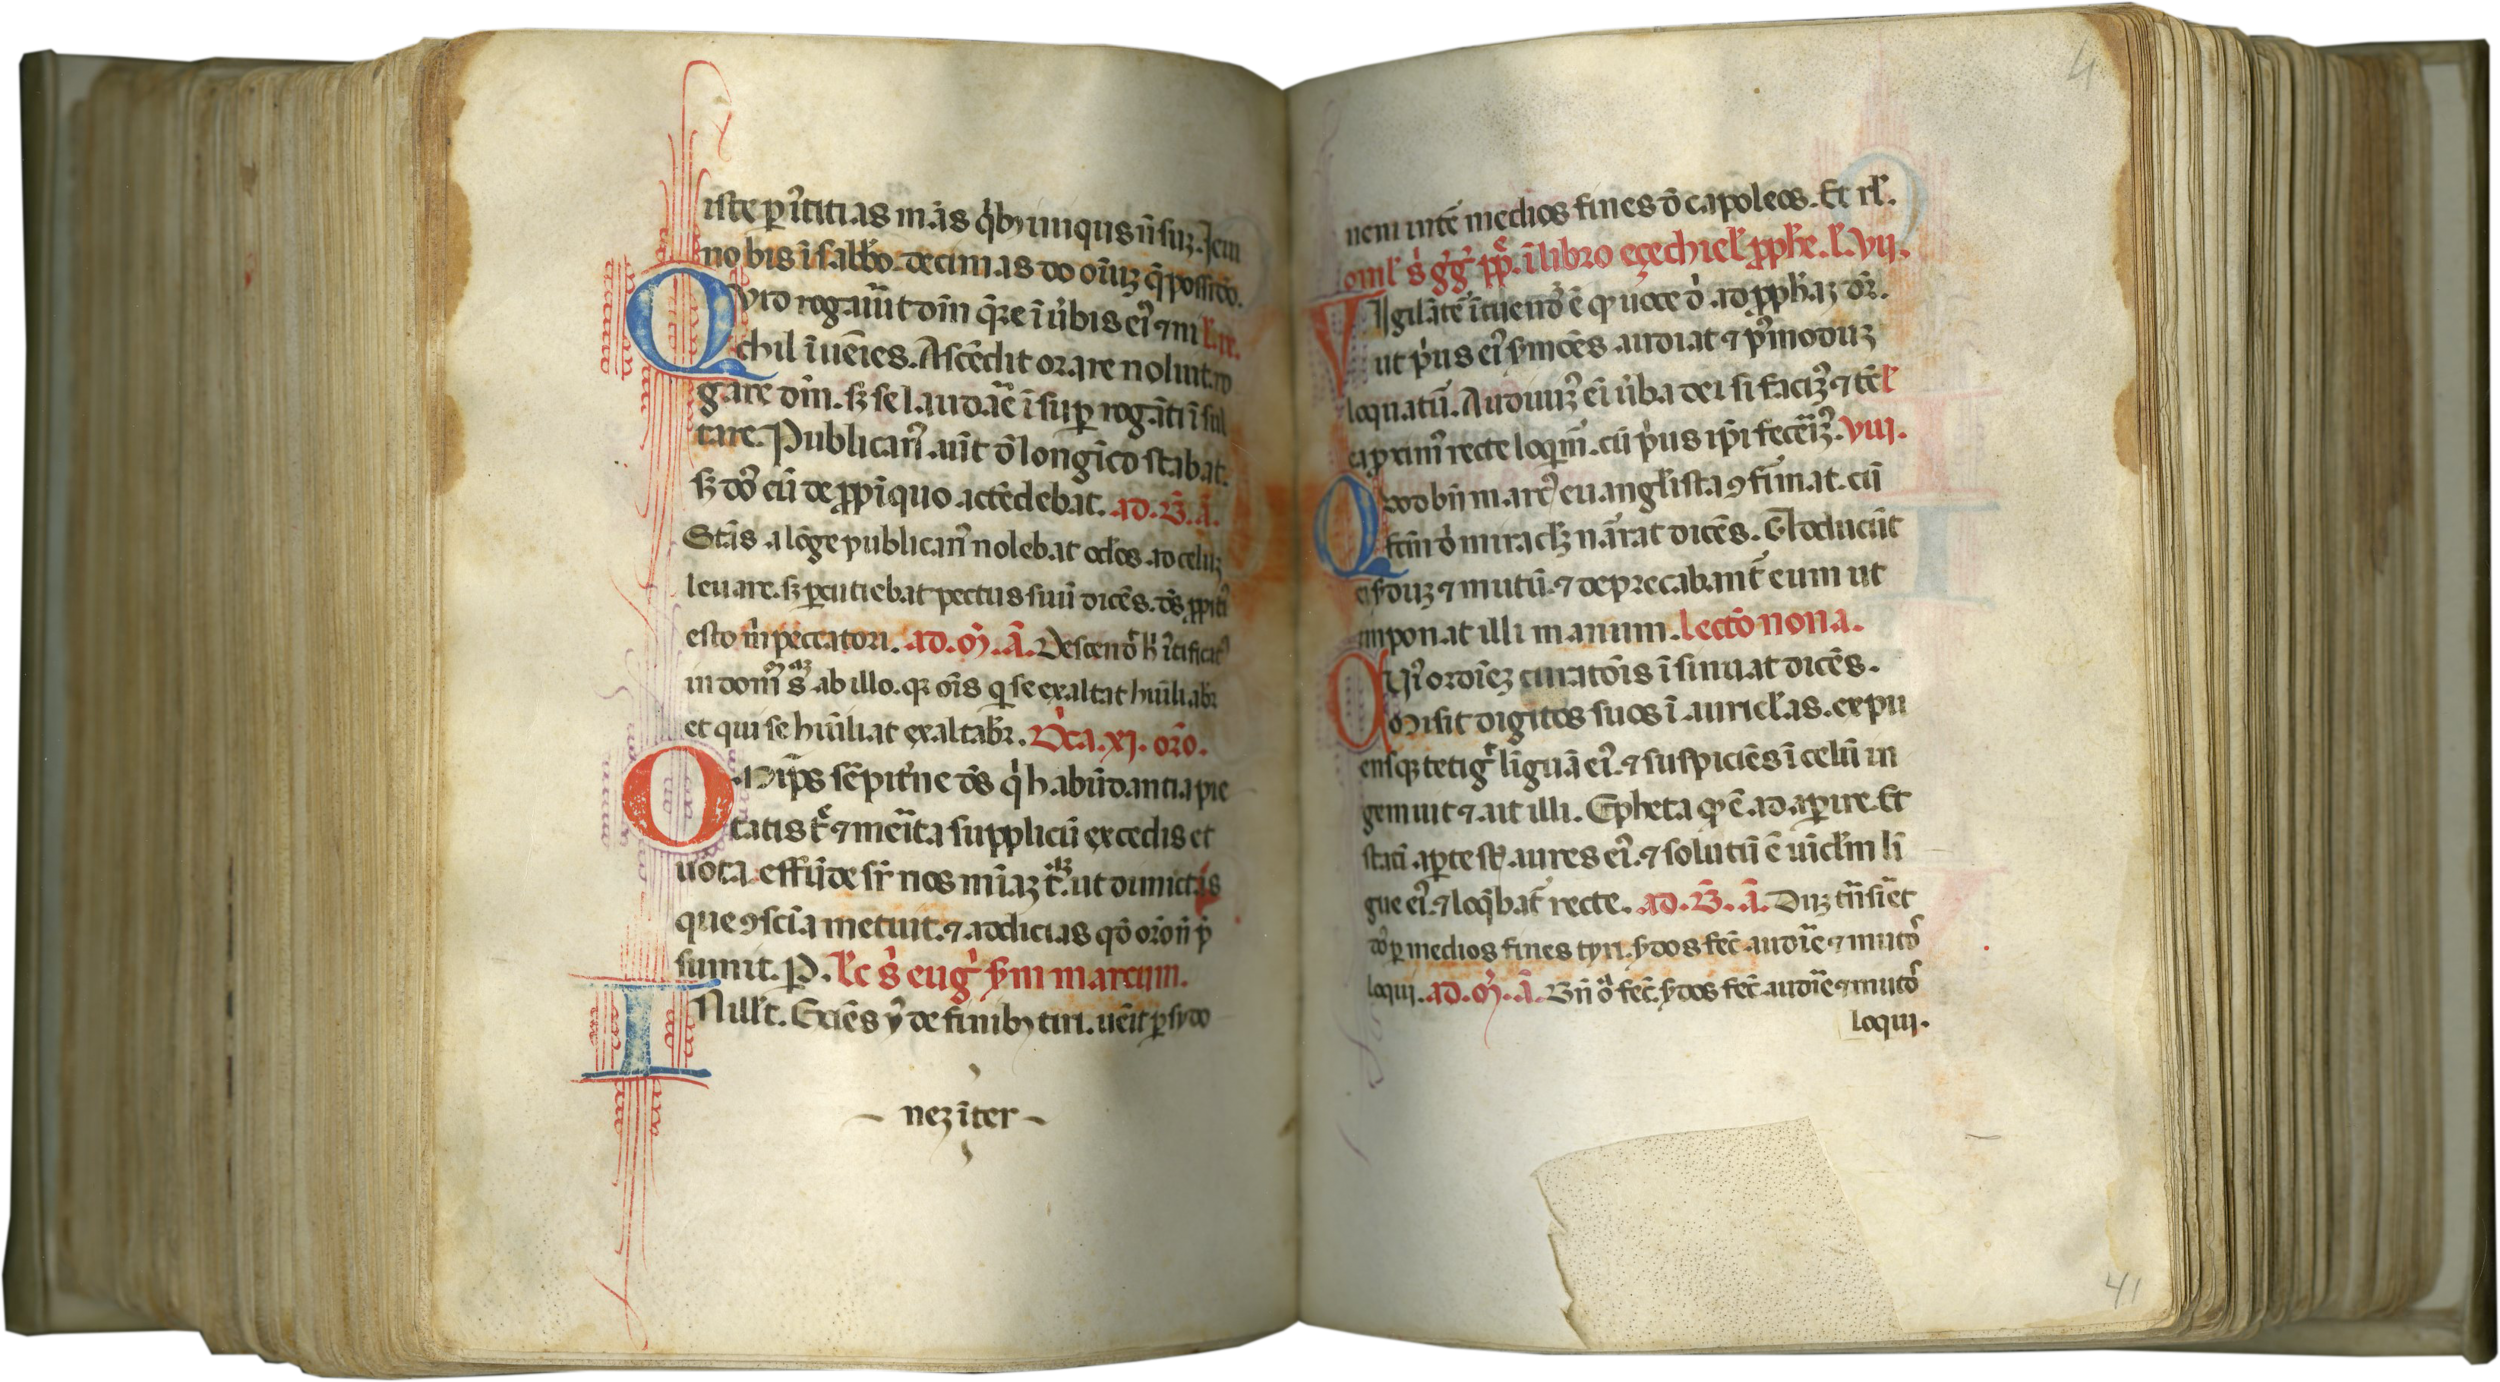 iste p̄ iustitias meas q̇bꝫ iniiqus ñ suꝫ. Iei u
no bis ĩ sabbo. decimas do oĩuꝫ q̃ possideo.
Qvid rogauĩt dĩm q̃re ĩ ùbis eiꝰ ⁊ ni
chil ĩuẽies. Ascẽdit orare noluit ro
gare dm̃. sꝫ se laudãe ĩsuꝑ rogãti ĩsul
tare. Publicanꝰ aũt ð longĩco stabat.
sꝫ dõ cũ de ꝓpĩquo accedebat. ad. B̃. ã.
Stãs alõge publicanꝰ nolebat oclõs ad celuꝫ
leuare. sꝫ ꝑcutiebat pectus suũ dicẽs. dš ꝓpitiꝰ
esto m̃ peccatori. ad. ɱ̃. ã. Descendͭ h̃ iꝰtificatꝰ
in domũ suaꝫ ab illo. qꝫ oĩs q̇ se exaltat huĩliabr̃
et qui se huĩliat exaltabr̃. Dc̃a. xj. orõ.
Oñips sẽpitr̃ne dš q̇ habũdantia pie
tatis tue ⁊ meĩta supplicũ excedis et
uota effũde sr̃ nos mĩaꝫ tuaꝫ ut dimictas
que ꝯsciã metuit. ⁊ adicias qð orõ ñ p̃
sumit. P. l̃c s̃ eug̃ sm̃ marcum.
In illt̃. Exiẽs ỹ de finibꝫ tiri. uẽit ꝑ sydo
nez iter
nem int̃ medios fines ð capoleos. Et rl̃.
omĩl s̃ gg̃ pp̃. ĩ libro eçechiel̃ ꝓph̃e. l̃. vij.
Vigilãte ĩtuendꝰ ẽ q̃ uoce ð. ad ꝓph̃aꝫ dr̃.
ut p̃us eiꝰ smões audiat ⁊ pꝰmoduꝫ
loquatũ. Audiuĩꝫ eĩ ùba dei si faciꝫꝰ ⁊ tc̃ l̃
ea ꝓximꝰ recte loqm̃. cũ p̃us ipĩ fecẽĩꝫꝰ. viij.
Quod bñ marcꝰ euangl̃ista ꝯfirmat. cũ
fcm̃ ð miraclꝫ nãrat dicẽs. Et adducũt
ei sduꝫ ⁊ mutũ. ⁊ deprecabant̃ eum ut
imponat illi manum. lectõ nona.
Cuiꝰ ordiẽꝫ curatõis ĩsinuat dicẽs.
Misit digitos suos ĩ auricl̃as. expu
ensqꝫ tetigͭ liguã eiꝰ. ⁊ suspiciẽs ĩ celũ in
gemuit ⁊ ait illi. Epheta qð ẽ. adaperire. Et
statĩ aꝑte st̃ aures eiꝰ. ⁊ solutũ ẽ uĩcl̃m lĩ
gue eiꝰ. ⁊ loq̃bat̃ recte. ad. B̃. ã. Duꝫ tñsiẽt
dñs ꝑ medios fines tyri. sdos fec̃ audĩe ⁊ mutos
loqui. ad. ɱ̃. ã. Bñ oĩa fec̃. sdos fec̃ audĩe ⁊ mutos
loqui.
41